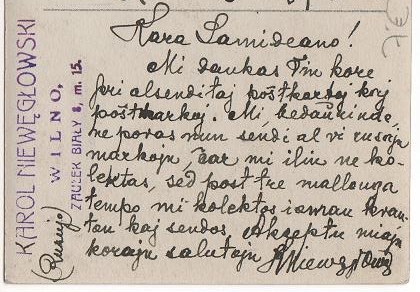 Kara Samideano!
Mi dankas Vin kore
pri alsenditaj poŝtkartoj kaj
poŝtmarkoj. Mi bedaŭrinde,
ne povas nun sendi al vi rusajn
markojn, ĉar mi ilin ne ko-
lektas, sed post tre mallonga
tempo mi kolektos iaman kvan-
ton kaj sendos. Akceptu miajn
korajn salutojn KNiewęgłowski
KAROL NIEWĘGŁOWSKI
WILNO,
ZAUŁEK BIAŁY 8, m. 15.
(Rusujo)